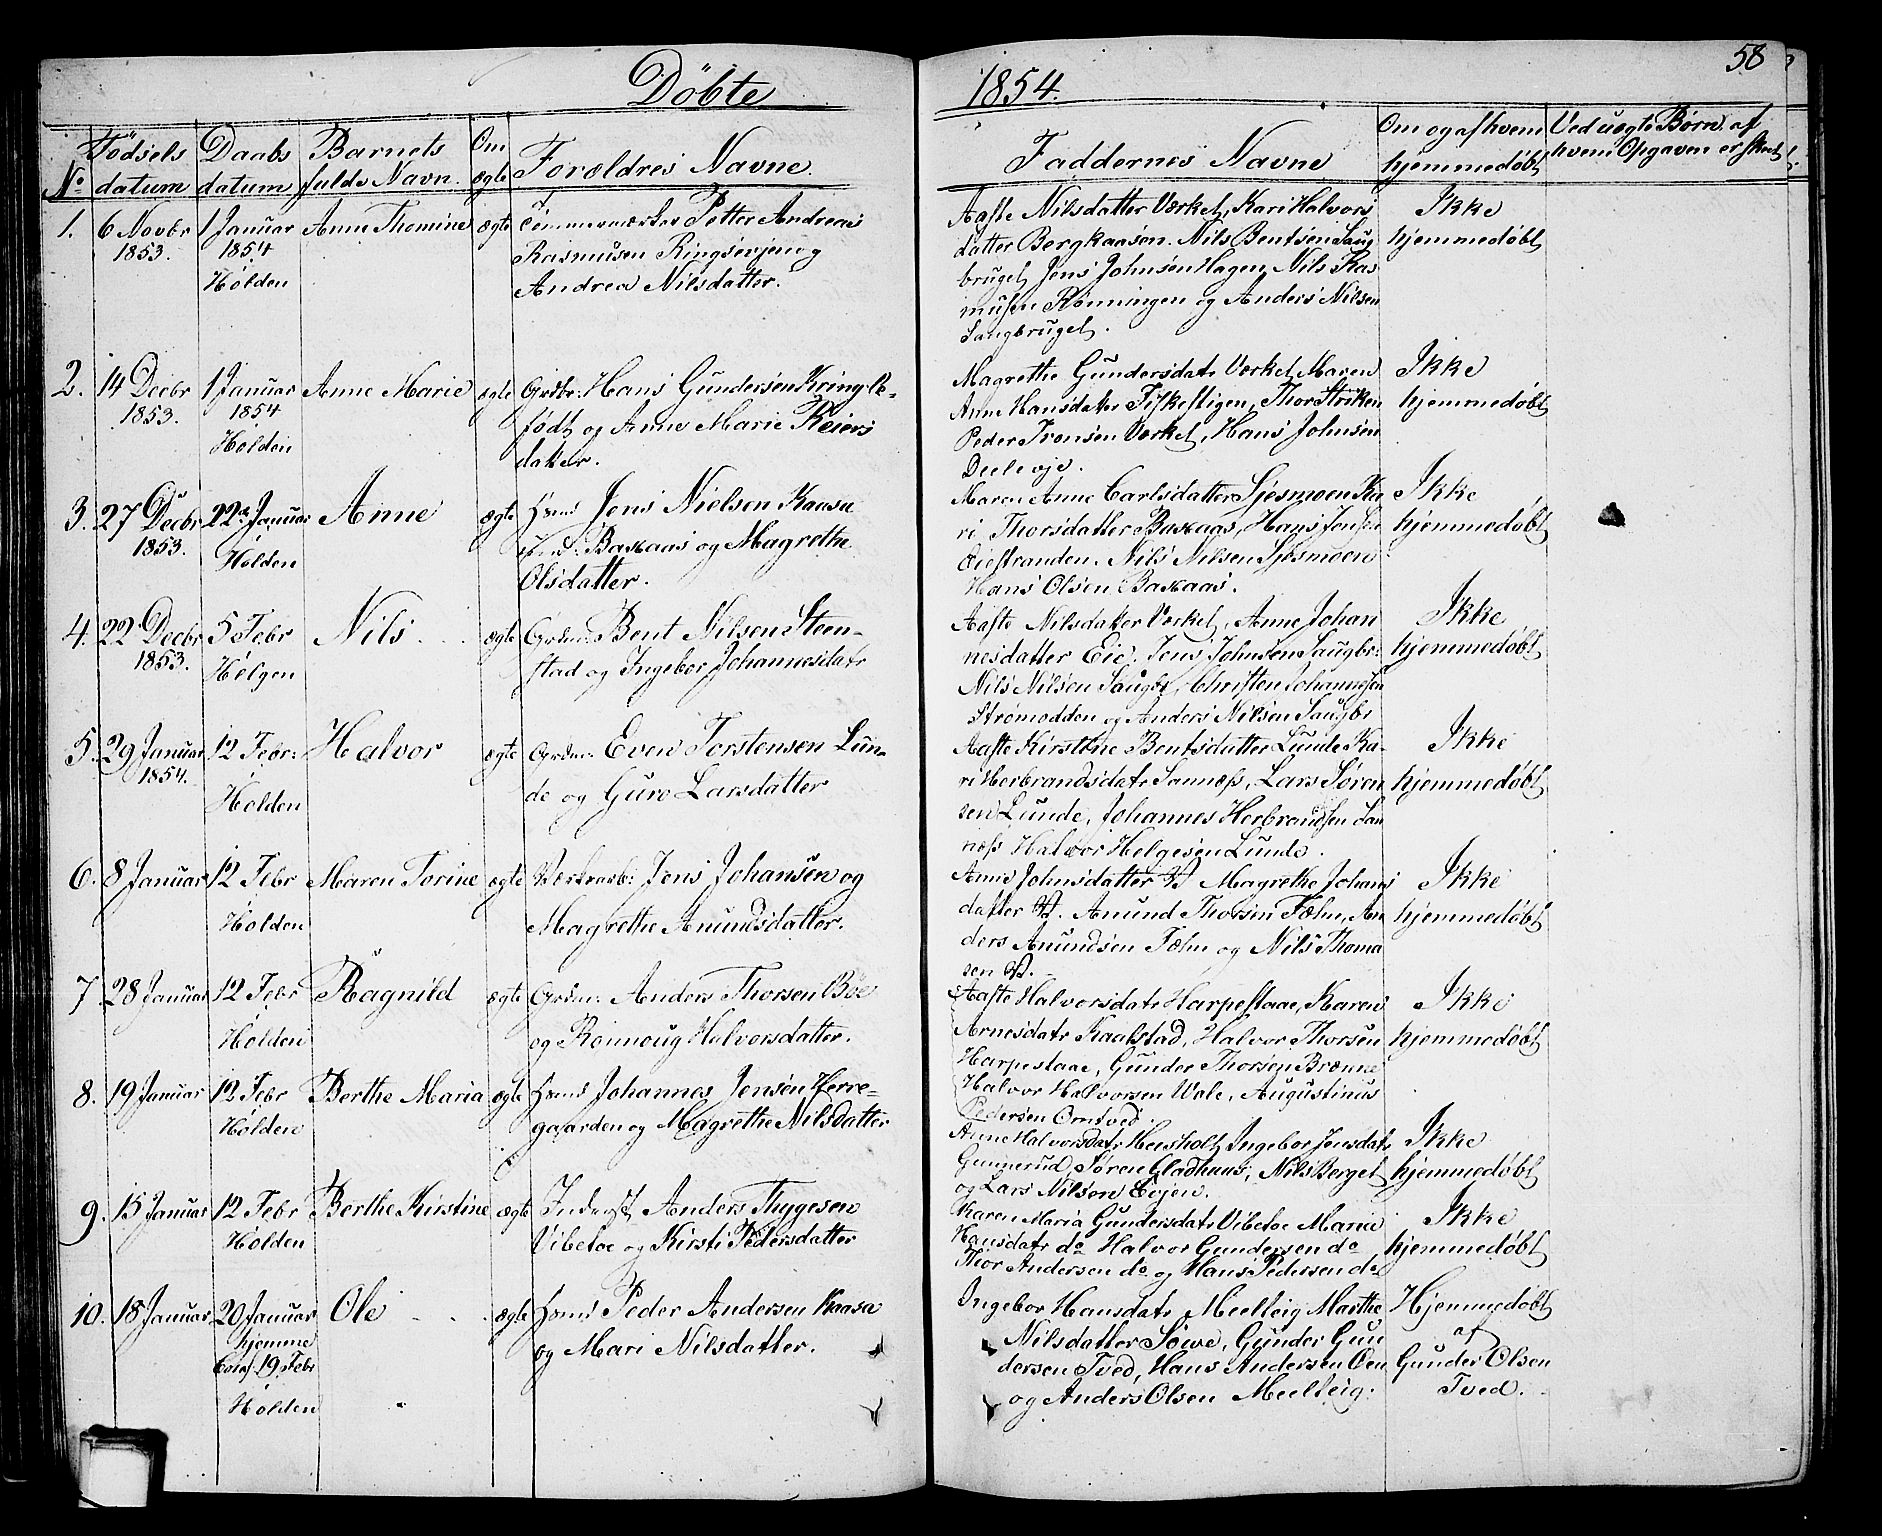 Döbte
1854.
58
No
Födsels datum
Daabs datum
Barnets fulde Navn.
Om ægte
Forældres Navne
Faddernes Navne
Om og af hvem hjemmedöbt
Ved uægte Børn af hvem Opgaven er skeet
1. 6 Novbr 1853. 1 Januar 1854 Hølden Anne Thomine ægte
Tömmermærker Petter Andreas
Rasmusen Ringsevjen og
Andrea Nilsdatter.
Aaste Nilsdatter Værket, Kari Halvors
datter Bergkaasen. Nils Bentsen Saug
bruget Jens Johnsen Hagen, Nils Ras
musen Rönningen og Anders Nilsen
Saugbruget.
Ikke
hjemmedöbt
2. 14 Decbr 1853. 1 Januar 1854 Holden Anne Marie ægte
Grdbr: Hans Gundersen Kringle-
födt og Anne Marie Reiers
datter.
Magrethe Gundersdatr Værket Maren
Anne Hansdatter Fiskestigen, Thor Striken
Peder Tronsen Værket, Hans Johnsen
Deelevje.
Ikke
hjemmedöbt
3. 27 Decbr 1853. 22 Januar Holden Anne ægte
Hsmd Jens Nielsen Kaasa
und: Baskaas og Magrethe
Olsdatter.
Maren Anne Carlsdatter Sjösmoen Ka
ri Thorsdatter Baskaas, Hans Jensen
Eiestranden. Nils Nilsen Sjösmoen
Hans Olsen Baskaas.
Ikke
hjemmedöbt
4. 22 Decbr 1853. 5 Febr Helgen Nils ægte
Grdm: Bent Nilsen Steen-
stad og Ingebor Johannesdatr
Aaste Nilsdatter Værket, Anne Johan
nesdatter Eie. Jens Johnsen Saugbr:
Nils Nilsen Saugbr, Christen Johannesen
Strömodden og Anders Nilsen Saugbr
Ikke
hjemmedöbt
5. 29 Januar 1854. 12 Febr: Holden Halvor ægte
Grdm: Even Torstensen Lun-
de og Guro Larsdatter
Aaste Kirstine Bentsdatter Lunde Ka-
ri Herbrandsdatr Sannæss, Lars Sören
sen Lunde, Johannes Herbrandsen San
næss Halvor Helgesen Lunde.
Ikke
hjemmedöbt
6. 8 Januar 12 Febr Holden Maren Torine ægte
Værksarb: Jens Johansen og
Magrethe Anundsdatter.
Anne Johnsdatter V. Magrethe Johans
datter V. Anund Thorsen Fæhn, An
ders Anundsen Fæhn og Nils Thoma
sen V.
Ikke
hjemmedöbt
7. 28 Januar 12 Febr Holden Ragnild ægte
Grdm: Anders Thorsen Böe
og Rönnoug Halvorsdatter.
Aaste Halvorsdatr Harpestaae, Karen
Arnesdatr Kaalstad, Halvor Thorsen
Harpestaae, Gunder Thorsen Brænne
Halvor Halvorsen Wale, Augustinus
Pedersen Orntved.
Ikke
hjemmedöbt
8. 19 Januar 12 Febr Holden Berthe Maria ægte
Hsmd Johannes Jensen Herre-
gaarden og Magrethe Nilsdatter
Anne Halvorsdatr Heisholt, Ingebor Jensdatr
Gunnerud, Sören Gladhuus, Nils Berget
og Lars Nilsen Evjen.
Ikke
hjemmedöbt
9. 15 Januar 12 Febr Holden Berthe Kirstine ægte
Inderst Anders Thygesen
Vibetoe og Kirsti Pedersdatter
Karen Maria Gundersdatr Vibetoe Maria
Hansdatr do Halvor Gundersen do
Thor Andersen do og Hans Pedersen do
Ikke
hjemmedöbt
10. 18 Januar 20 Januar hjemme Conf: 19 Febr Holden Ole ægte
Hsmd Peder Andersen Kaasa
og Mari Nilsdatter.
Ingebor Hansdatr Meelteig Marthe
Nilsdatter Söwe, Gunder Gun
dersen Tved, Hans Andersen Oen
og Anders Olsen Meelteig.
Hjemmedöbt
af
Gunder Olsen
Tved.